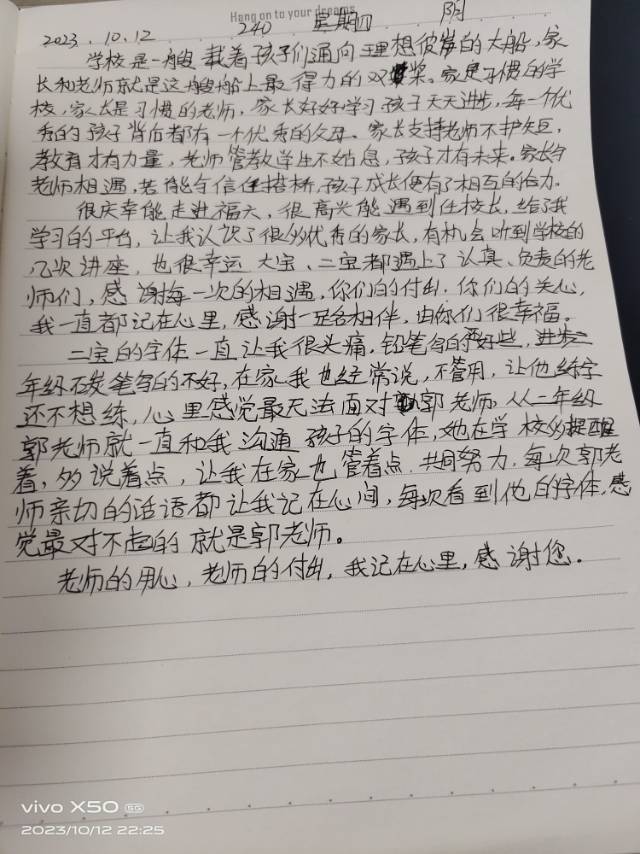 Hang on to your dreams
2023.10.12 240 星期四 阴
学校是一艘载着孩子们通向理想彼岸的大船,家
长和老师就是这艘船上最得力的双桨。家是习惯的学
校,家长是习惯的老师,家长好好学习孩子天天进步,每一个优
秀的孩子背后都有一个优秀的父母。家长支持老师不护短,
教育才有力量,老师管教学生不姑息,孩子才有未来。家长与
老师相遇,若能与信任搭桥,孩子成长便有了相互的合力。
很庆幸能走进福六,很高兴能遇到任校长,给了我
学习的平台,让我认识了很多优秀的家长,有机会听到学校的
几次讲座,也很幸运大宝、二宝都遇上了认真、负责的老
师们,感谢每一次的相遇,你们的付出,你们的关心,
我一直都记在心里,感谢一路相伴,由你们很幸福。
二宝的字体一直让我很头痛,铅笔写的好些,进步二
年级碳笔写的不好,在家我也经常说,不管用,让他练字
还不想练,心里感觉最无法面对郭老师,从二年级
郭老师就一直和我沟通孩子的字体,她在学校多提醒
着,多说着点,让我在家也管着点,共同努力,每次郭老
师亲切的话语都让我记在心间,每次看到他的字体,感
觉最对不起的就是郭老师。
老师的用心,老师的付出,我记在心里,感谢您.
vivo X50 5G
2023/10/12 22:25